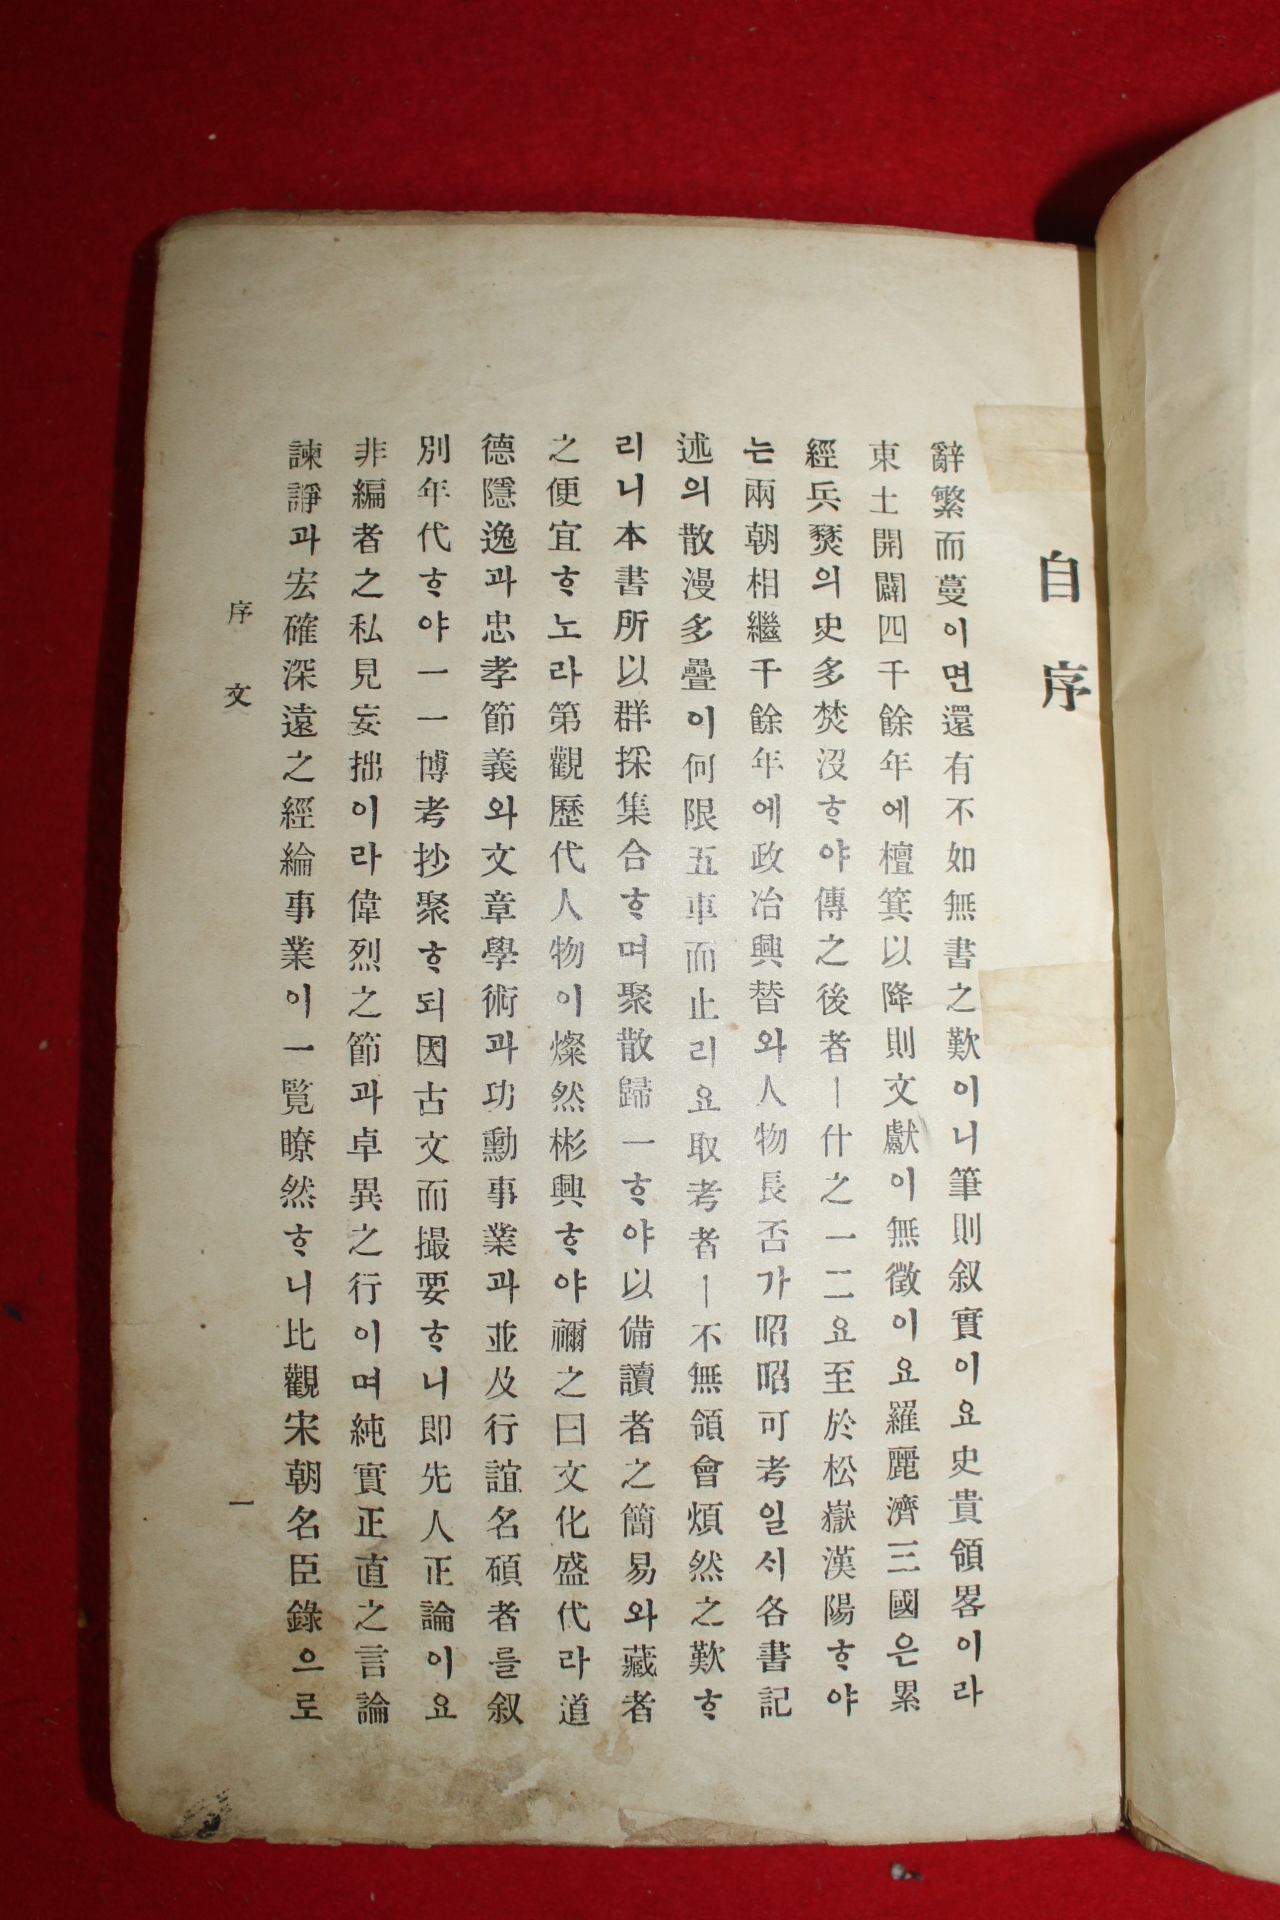 自序
辭繁而蔓이면還有不如無書之歎이니筆則叙實이요史貴領畧이라
東土開闢四千餘年에檀箕以降則文獻이無徵이요羅麗濟三國은累
經兵燹의史多焚沒ᄒᆞ야傳之後者ㅣ什之一二요至於松嶽漢陽ᄒᆞ야
는兩朝相繼千餘年에政治興替와人物長否가昭昭可考일시各書記
述의散漫多疊이何限五車而止리요取考者ㅣ不無領會煩然之歎ᄒᆞ
리니本書所以群採集合ᄒᆞ며聚散歸一ᄒᆞ야以備讀者之簡易와藏者
之便宜ᄒᆞ노라第觀歷代人物이燦然彬興ᄒᆞ야禰之曰文化盛代라道
德隱逸과忠孝節義와文章學術과功勳事業과並及行誼名碩者를叙
別年代ᄒᆞ야一一博考抄聚ᄒᆞ되因古文而撮要ᄒᆞ니即先人正論이요
非編者之私見妄拙이라偉烈之節과卓異之行이며純實正直之言論
諫諍과宏確深遠之經綸事業이一覧瞭然ᄒᆞ니比觀宋朝名臣錄으로
序文
一